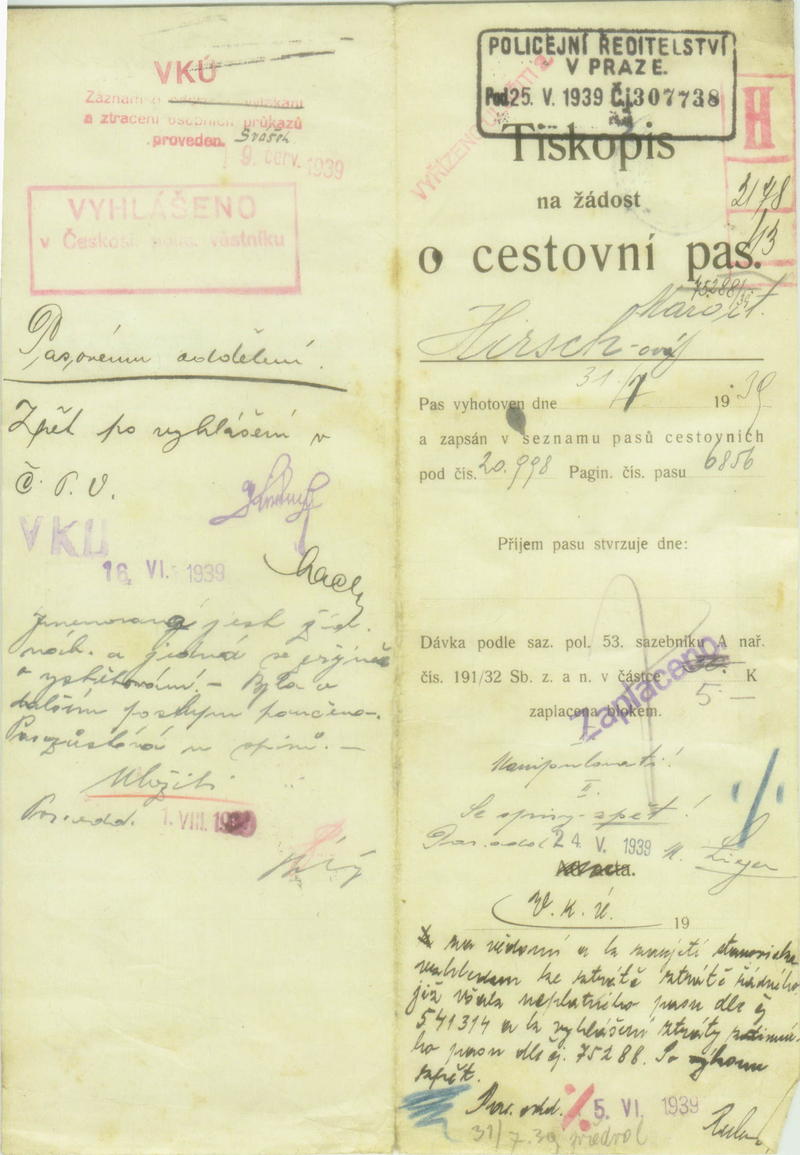 VKÚ
a ztracení osobních průkazů
proveden.
9. červ. 1939
VYHLÁŠENO
v Českosl. věstníku
Pasovému oddělení.
Zpět po vyhlášení v
Č. P. V.
VKÚ
16. VI. 1939
jest žid.
náb. a jedná se
o vystěhování. – Byla o
dalším postupu poučena.
Pas zůstává u spisů. –
Uložiti
Pas. odd. 1. VIII. 1939
POLICEJNÍ ŘEDITELSTVÍ
V PRAZE.
Pod 25. V. 1939 Č.j. 307738
VYŘÍZENO
H
2178
13
Tiskopis
na žádost
o cestovní pas.
75288/39
Markét.
Hirsch-ový
Pas vyhotoven dne 31/7 1939
a zapsán v seznamu pasů cestovních
pod čís. 20.998 Pagin. čís. pasu 6856
Příjem pasu stvrzuje dne:
Dávka podle saz. pol. 53. sazebníku A nař.
čís. 191/32 Sb. z. a n. v částce K
5 –
zaplacena blokem.
Zaplaceno
Manipulovati!
II.
Se spisy zpět!
Pas. odd. 24. V. 1939
V. k. ú.
19
na vědomí a k zaujetí stanoviska
vzhledem ke ztrátě ztrátě řádného
již však neplatného pasu dle čj
541314 a k vyhlášení ztráty
ho pasu dle čj. 75288. Se
zpět.
Pas. odd. 5. VI. 1939
31/7.39